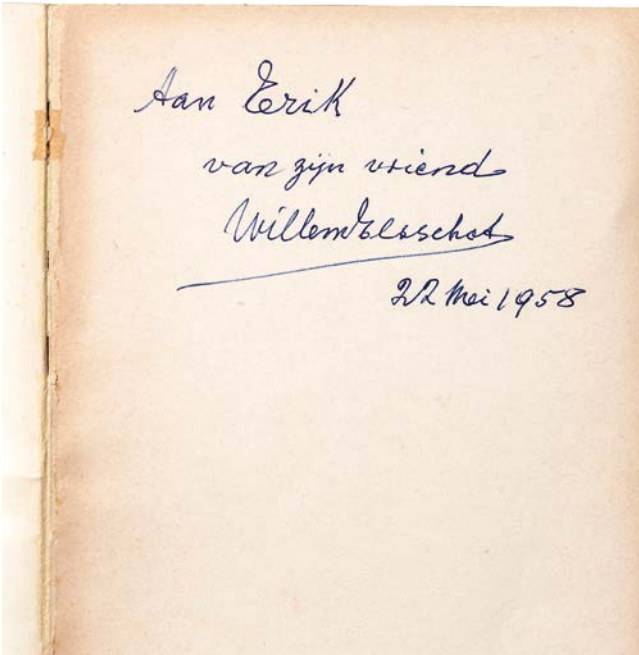 Aan Erik
van zijn vriend
Willem Elsschot
22 Mei 1958